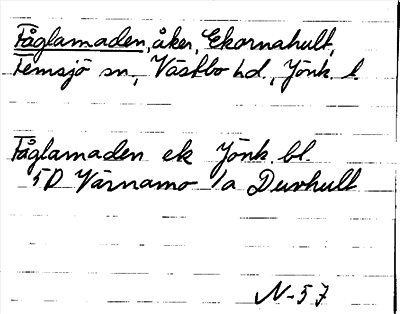 Fåglamaden, åker, Ekornahult,
Femsjö sn, Västbo hd., Jönk. l.
Fåglamaden ek Jönk. bl.
5D Värnamo 1a Duvhult
N-57